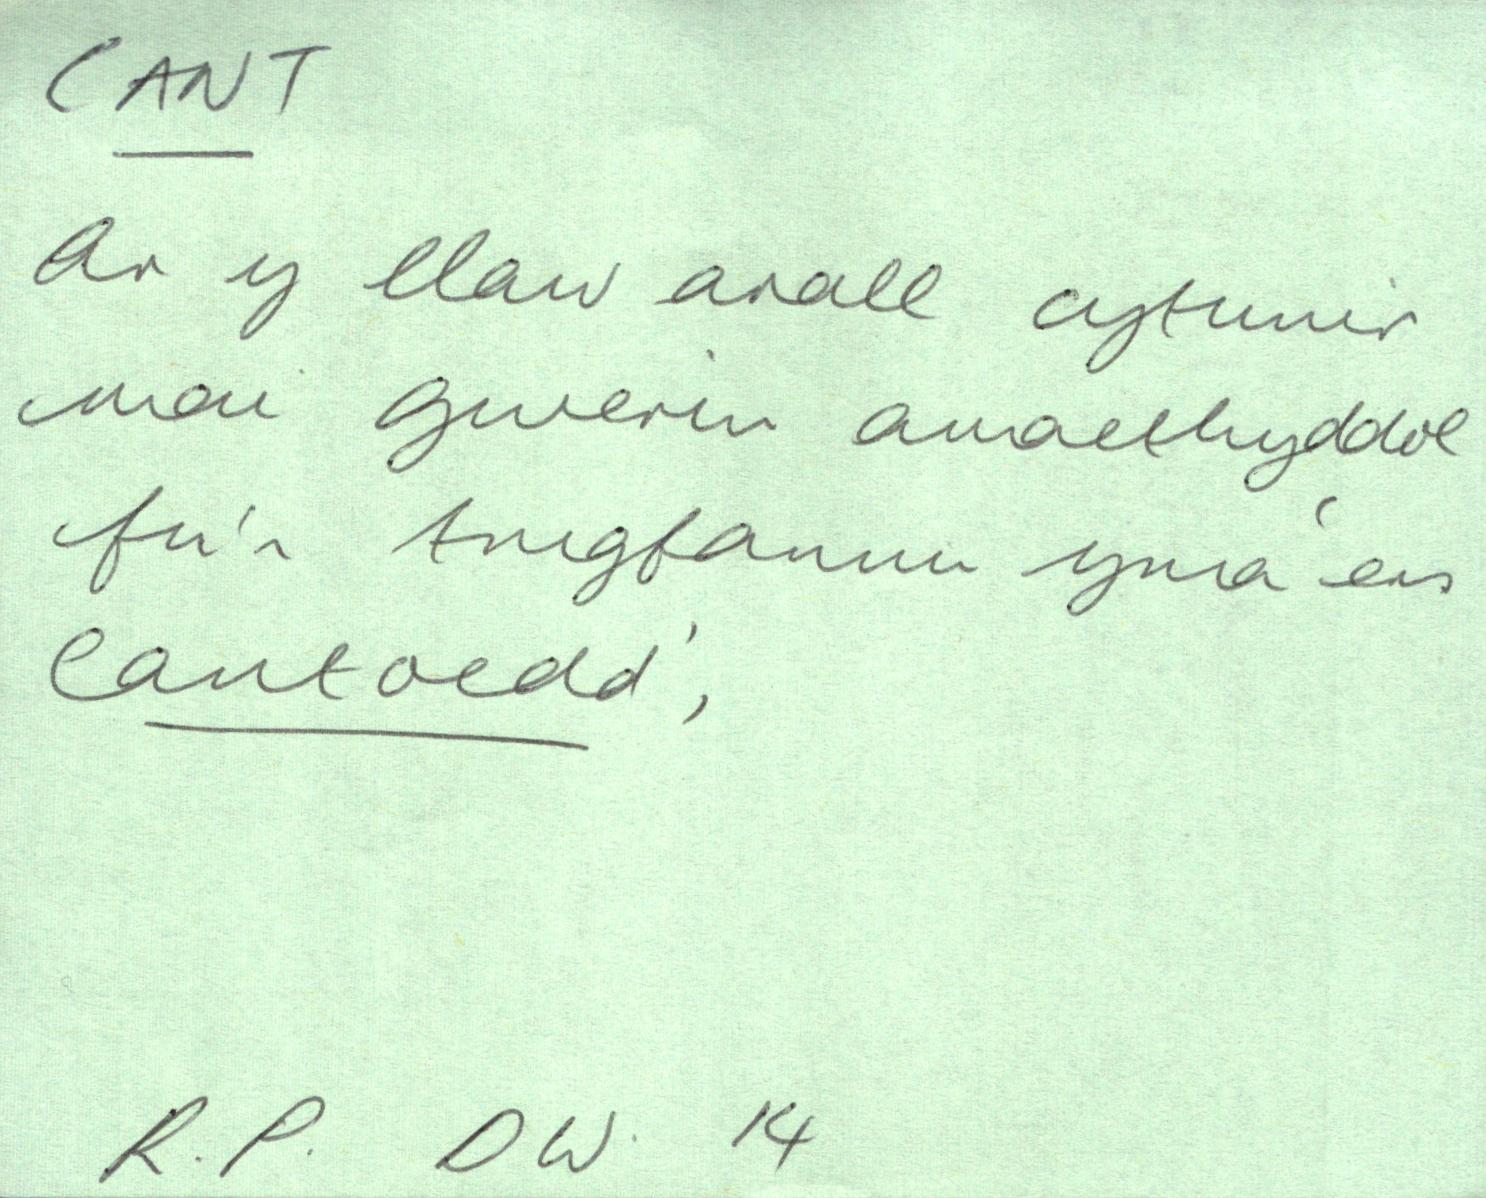 CANT
Ar y llaw arall cytunir
mai gwerin amaethyddol
fu'n trigfannu yma 'ers
Cantoedd',
R.P. DW. 14